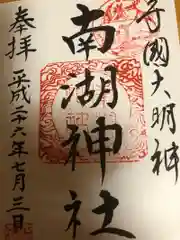 守國大明神
南湖神社
奉拝
平成二十六年七月三日